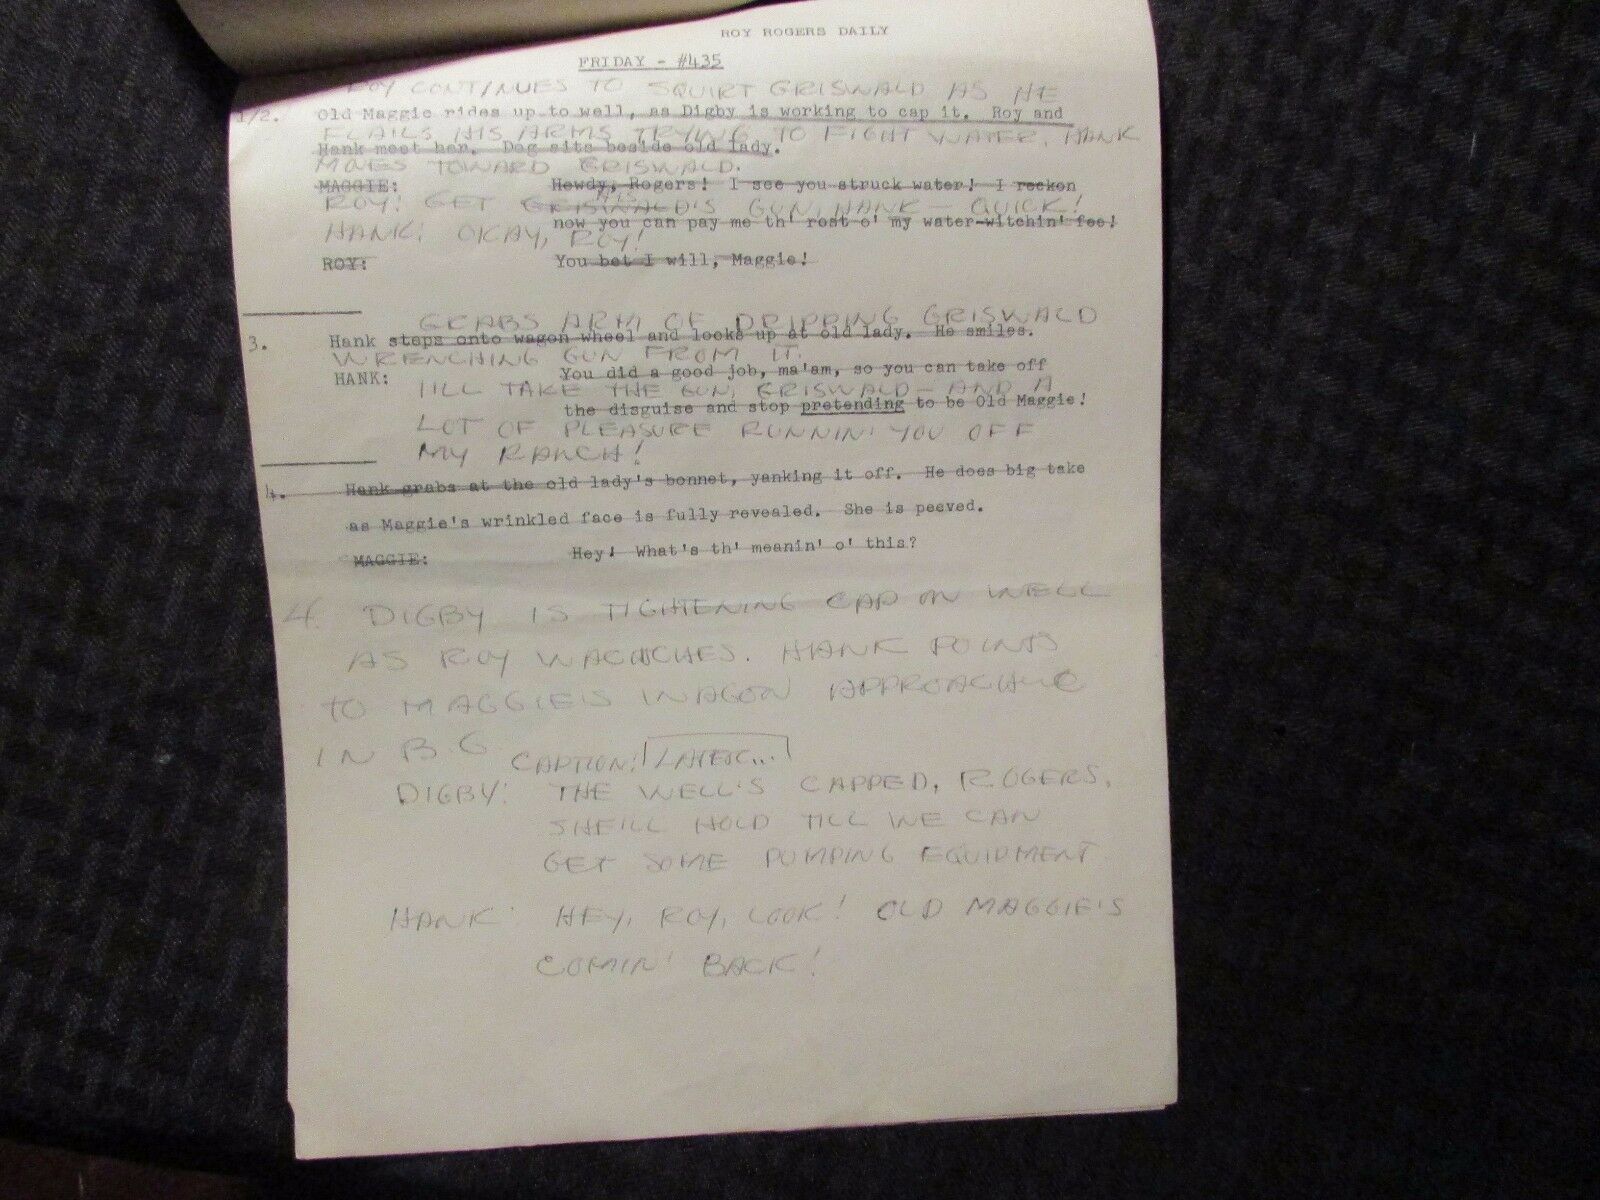 ROY ROGERS DAILY
FRIDAY - #435
ROY CONTINUES TO SQUIRT GRISWALD AS HE
1/2. Old Maggie rides up to well, as Digby is working to cap it. Roy and
FLAILS HIS ARMS TRYING TO FIGHT WATER. HANK
Hank meet her. Dog sits beside old lady.
MOVES TOWARD GRISWALD.
MAGGIE: Howdy, Rogers! I see you struck water! I reckon
ROY: GET GRISWALD'S GUN, HANK - QUICK!
now you can pay me th' rest o' my water-witchin' fee!
HANK: OKAY, ROY!
ROY: You bet I will, Maggie!
GRABS ARM OF DRIPPING GRISWALD
3. Hank steps onto wagon wheel and looks up at old lady. He smiles.
WRENCHING GUN FROM IT.
HANK: You did a good job, ma'am, so you can take off
I'LL TAKE THE GUN, GRISWALD - AND A
the disguise and stop pretending to be Old Maggie!
LOT OF PLEASURE RUNNIN' YOU OFF
MY RANCH!
4. Hank grabs at the old lady's bonnet, yanking it off. He does big take
as Maggie's wrinkled face is fully revealed. She is peeved.
MAGGIE: Hey! What's th' meanin' o' this?
4. DIGBY IS TIGHTENING CAP ON WELL
AS ROY WACHCHES. HANK POINTS
TO MAGGIE'S WAGON APPROACHING
IN B.G
CAPTION: LATER...
DIGBY: THE WELL'S CAPPED, ROGERS.
SHE'LL HOLD TILL WE CAN
GET SOME PUMPING EQUIPMENT
HANK: HEY, ROY, LOOK! OLD MAGGIE'S
COMIN' BACK!